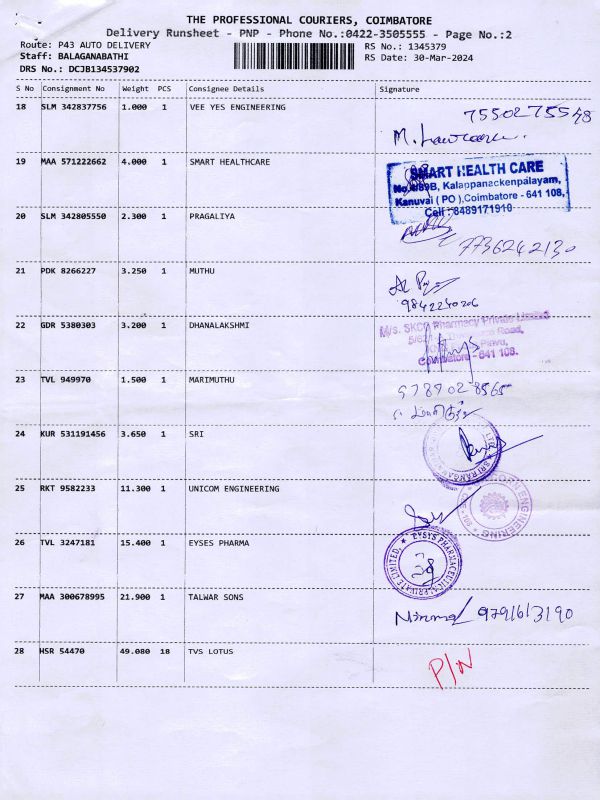 THE PROFESSIONAL COURIERS, COIMBATORE
Delivery Runsheet - PNP - Phone No.:0422-3505555 - Page No.:2
Route: P43 AUTO DELIVERY
RS No.: 1345379
Staff: BALAGANABATHI
RS Date: 30-Mar-2024
DRS No.: DCJB134537902
S No Consignment No Weight PCS Consignee Details Signature
18 SLM 342837756 1.000 1 VEE YES ENGINEERING
7550275548
19 MAA 571222662 4.000 1 SMART HEALTHCARE
SMART HEALTH CARE
Kalappanackenpalayam,
Kanuvai ( PO ),Coimbatore - 641 108,
Cell : 8489171910
20 SLM 342805550 2.300 1 PRAGALIYA
7736242130
21 PDK 8266227 3.250 1 MUTHU
9842240206
22 GDR 5380303 3.200 1 DHANALAKSHMI
M/s. SKCP Pharmacy Private Limited
Road,
Coimbatore - 641 108.
23 TVL 949970 1.500 1 MARIMUTHU
978902 8565
24 KUR 531191456 3.650 1 SRI
25 RKT 9582233 11.300 1 UNICOM ENGINEERING
ENGINEERING
26 TVL 3247181 15.400 1 EYSES PHARMA
EYSYS PHARMACEUTICAL PRIVATE LIMITED.
27 MAA 300678995 21.900 1 TALWAR SONS
Nirmal 9791613190
28 HSR 54470 49.080 18 TVS LOTUS
P/N